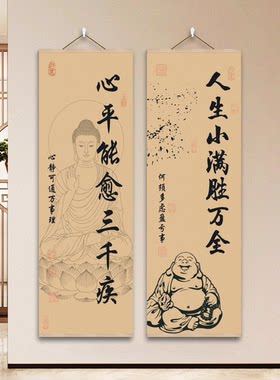 心平能愈三千疾
心静可通万事理
人生小满胜万全
何须多虑盈亏事